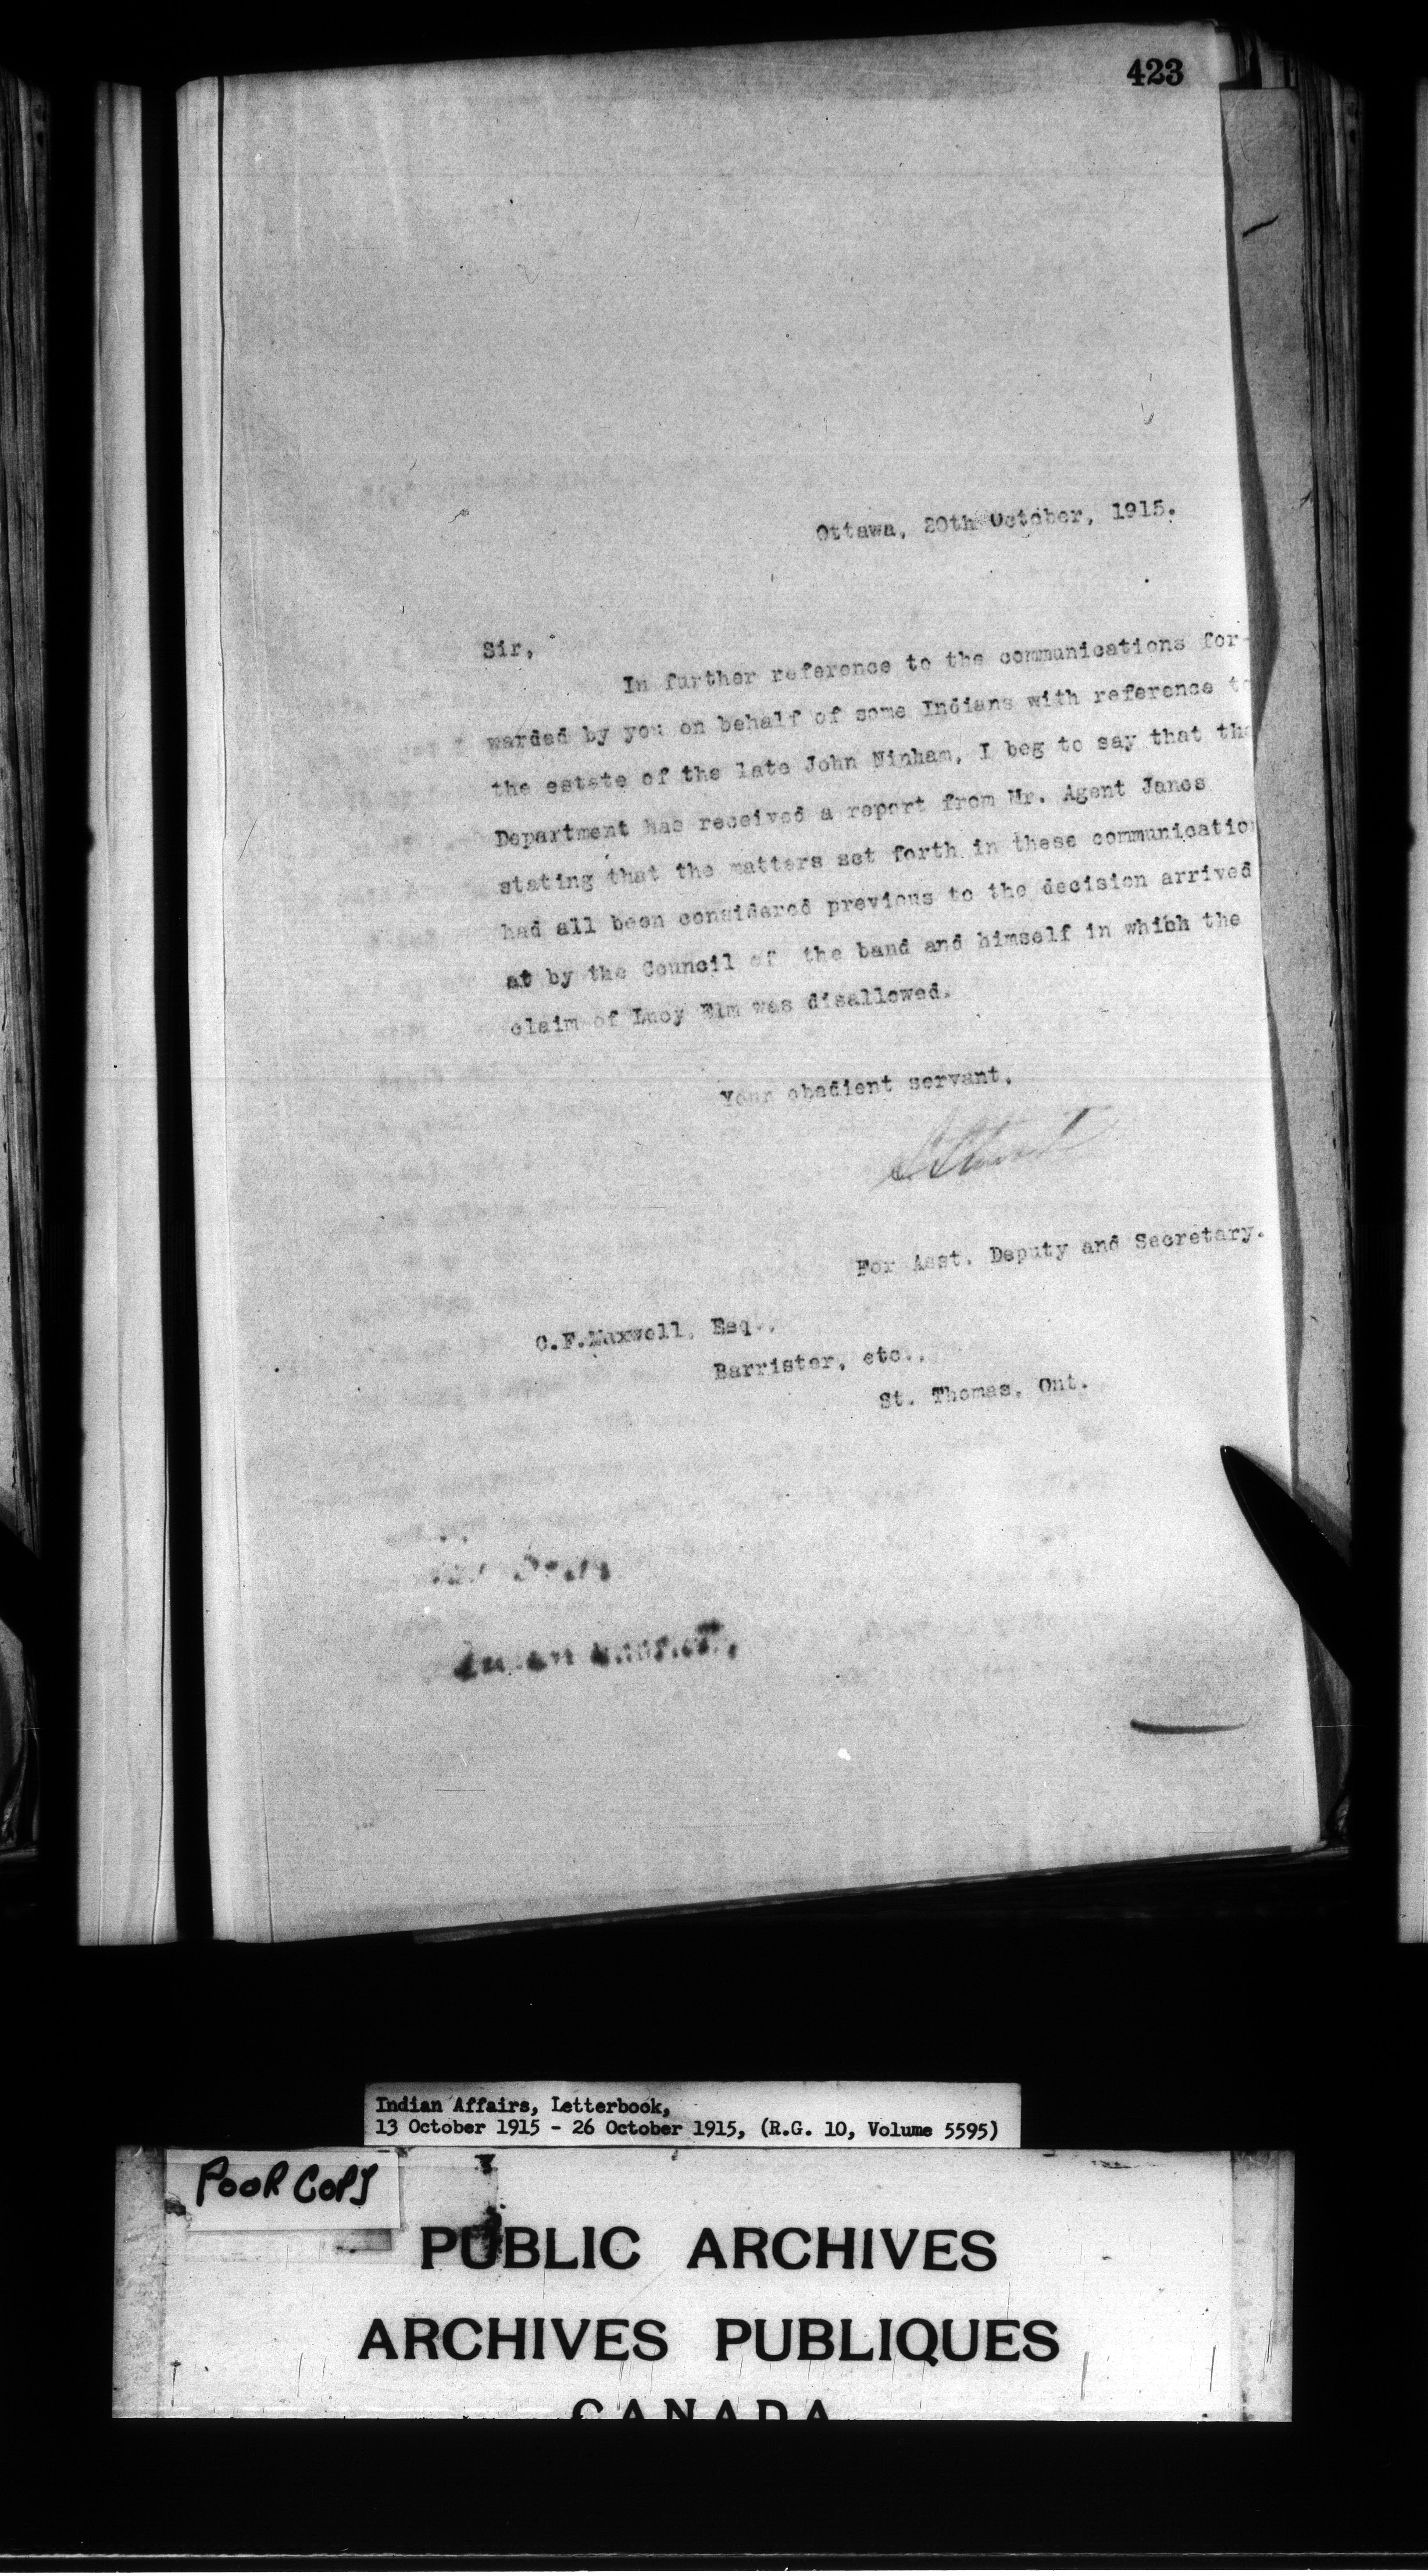 423
Ottawa, 20th October, 1915.
Sir,
In further reference to the communications for-
warded by you on behalf of some Indians with reference to
the estate of the late John Ninham, I beg to say that the
Department has received a report from Mr. Agent Janes
stating that the matters set forth in these communication
had all been considered previous to the decision arrived
at by the Council of the band and himself in which the
claim of Lucy Elm was disallowed.
Your obedient servant,
For Asst. Deputy and Secretary.
C.F.Maxwell, Esq.,
Barrister, etc.,
St. Thomas, Ont.
Indian Affairs, Letterbook,
13 October 1915 - 26 October 1915, (R.G. 10, Volume 5595)
POOR COPY
PUBLIC ARCHIVES
ARCHIVES PUBLIQUES
CANADA